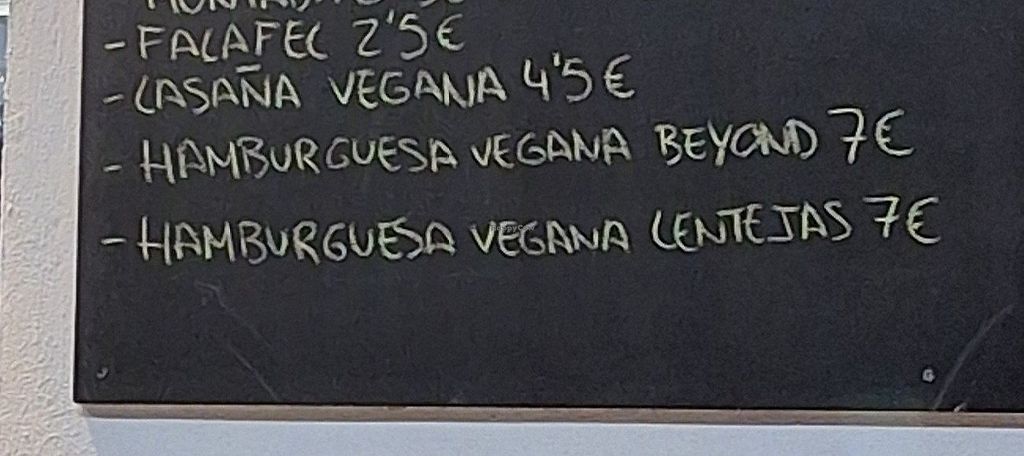 - FALAFEL 2'5€
- LASAÑA VEGANA 4'5€
- HAMBURGUESA VEGANA BEYOND 7€
- HAMBURGUESA VEGANA LENTEJAS 7€